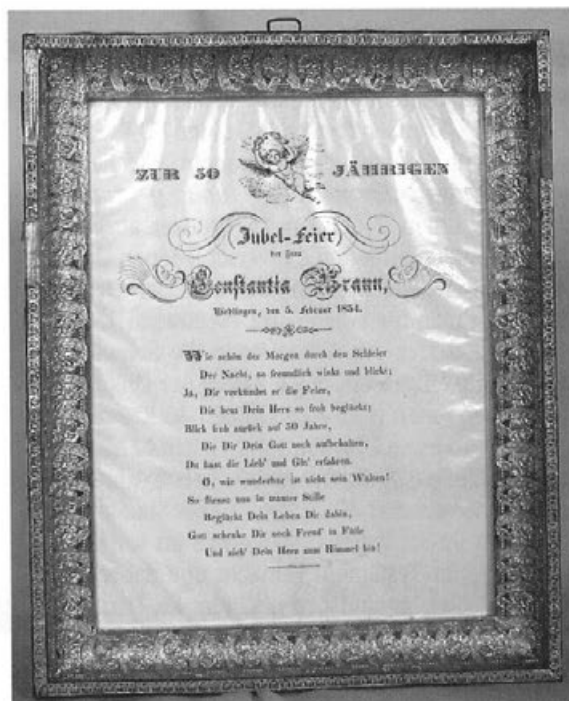 ZUR 50 JÄHRIGEN
(Jubel-Feier)
der Frau
Constantia Braun,
Riedlingen, den 5. Februar 1854.
Wie schön der Morgen durch den Schleier
Der Nacht, so freundlich winkt und blickt;
Ja, Dir verkündet er die Feier,
Die heut Dein Herz so froh beglückt;
Blick froh zurück auf 50 Jahre,
Die Dir Dein Gott noch aufbehalten,
Du hast die Lieb' und Güt' erfahren.
O, wie wunderbar ist nicht sein Walten!
So fliesst nun in Stille
Beglückt Dein Leben Dir dahin,
Gott schenke Dir noch Freud' in Fülle
Und zieh' Dein Herz zum Himmel hin!